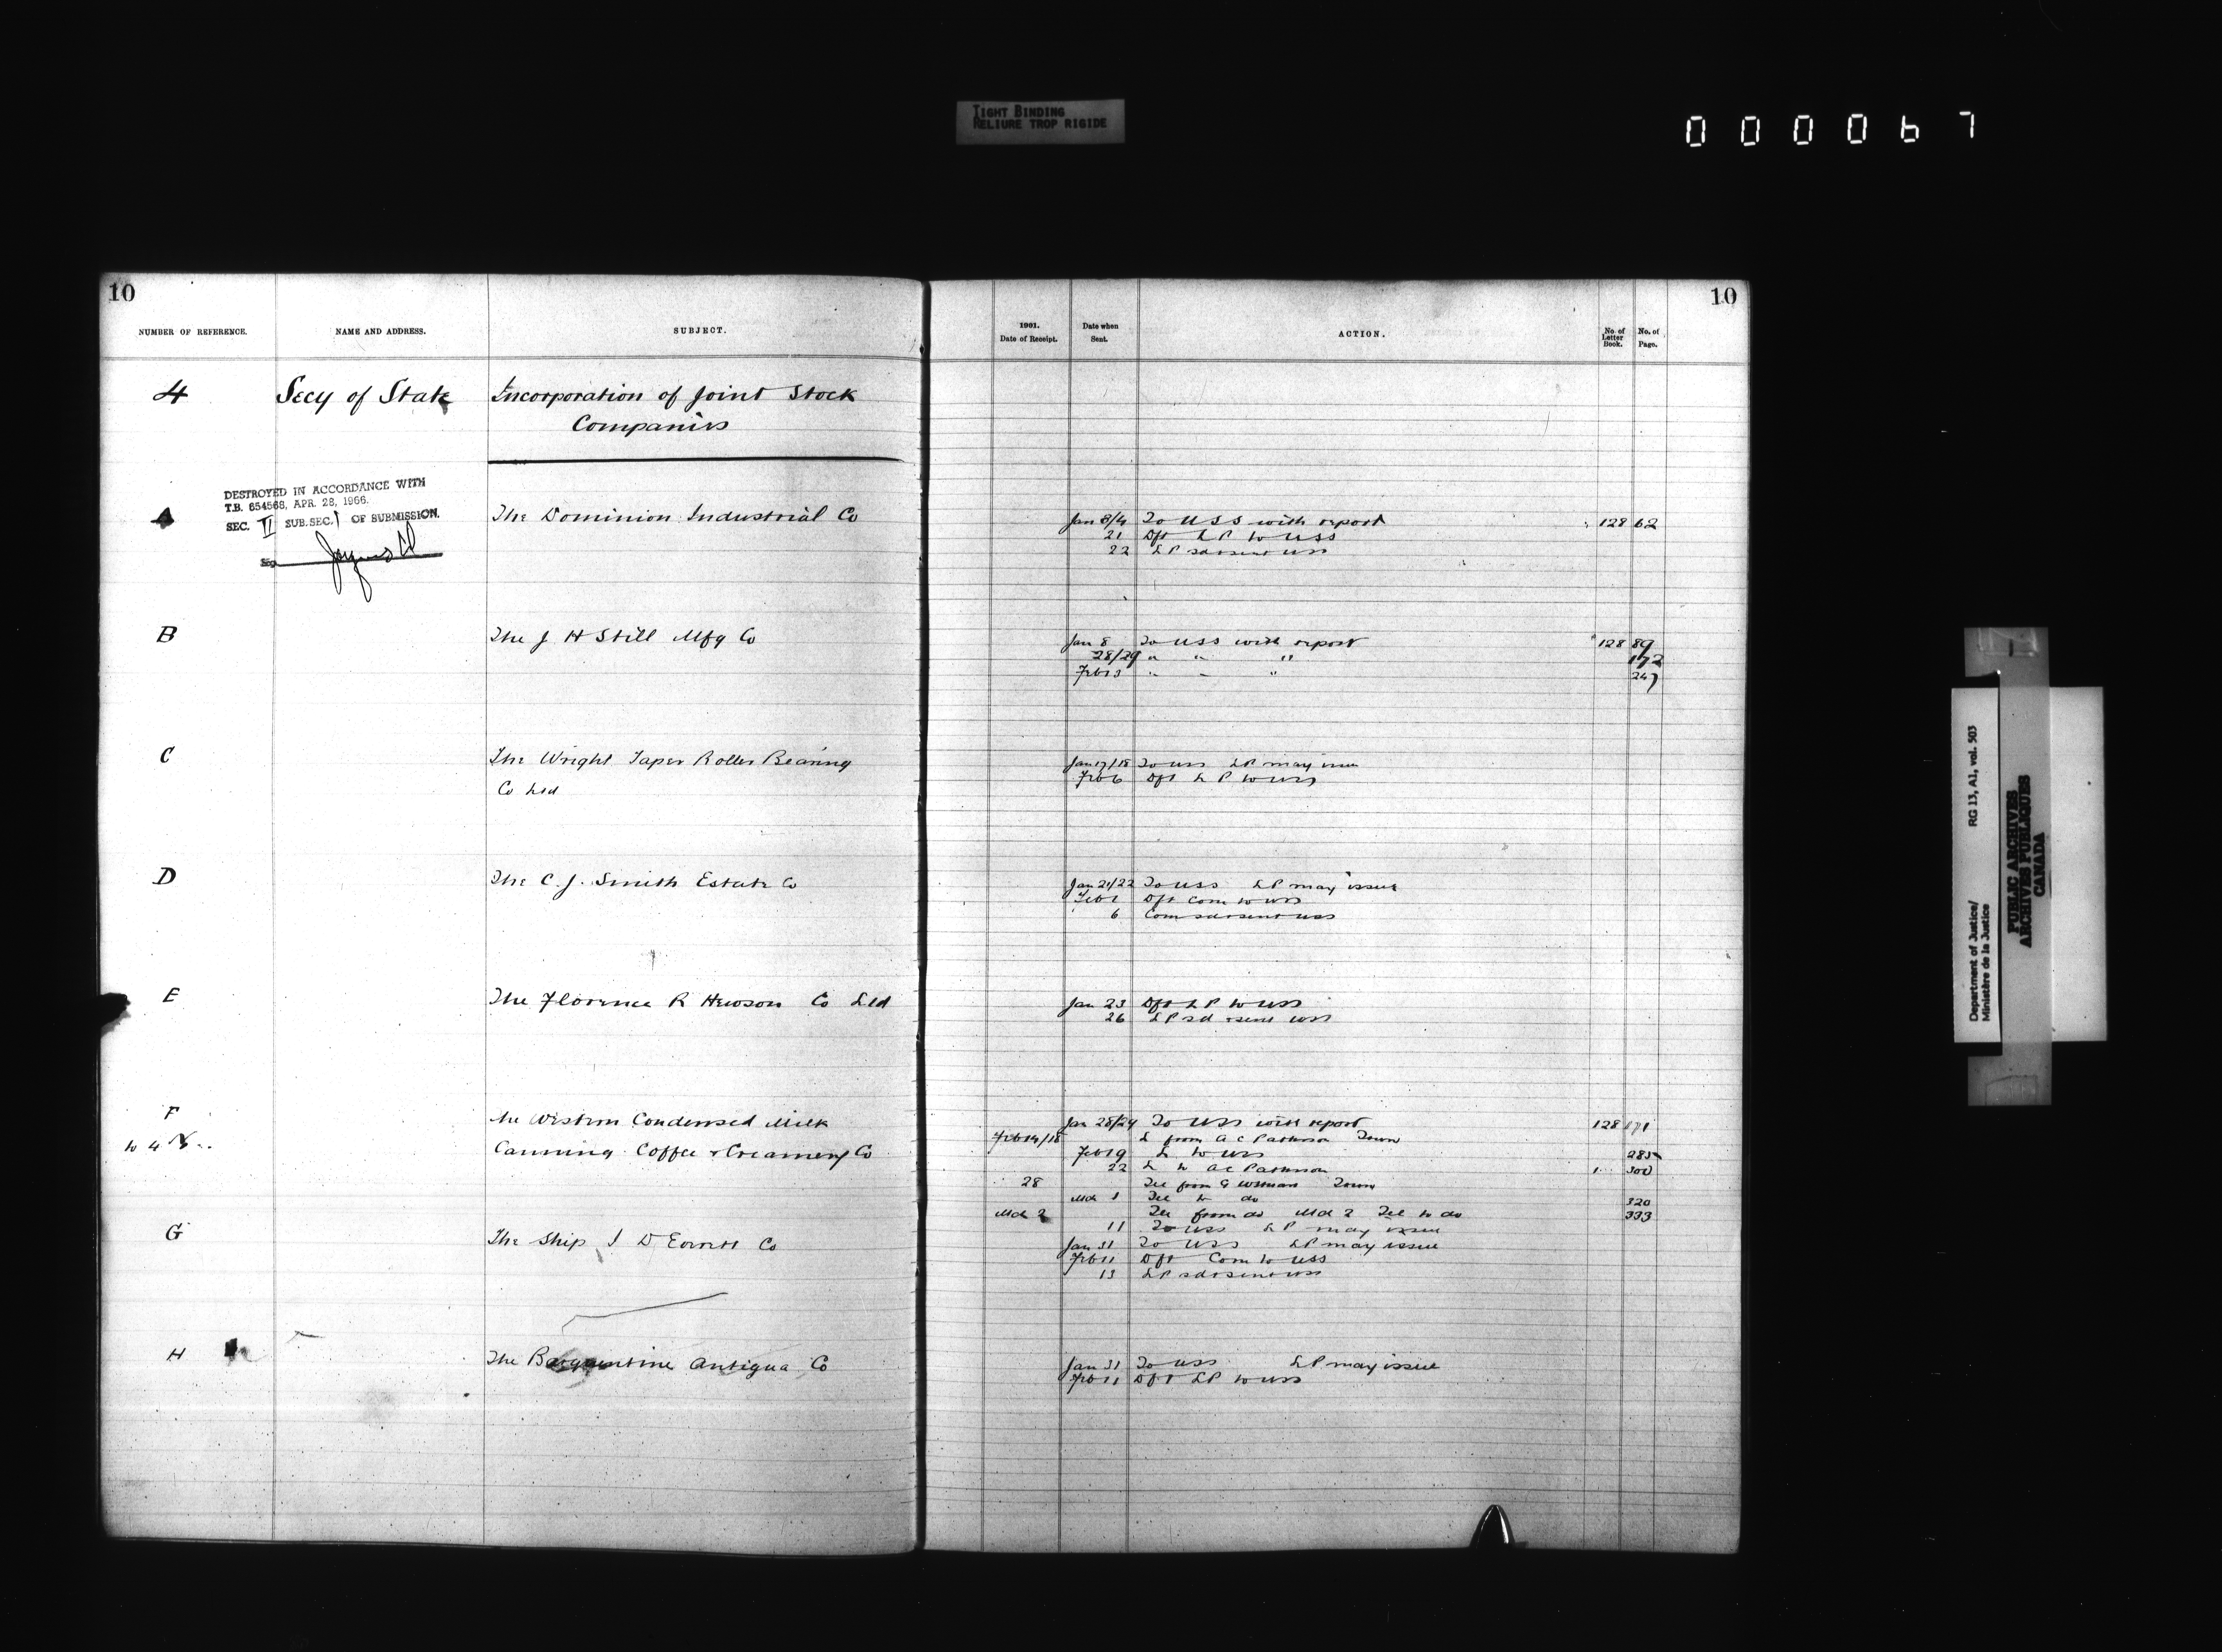 TIGHT BINDING
RELIURE TROP RIGIDE
000067
10
NUMBER OF REFERENCE.
NAME AND ADDRESS.
SUBJECT.
4
Secy of State
Incorporation of Joint Stock
Companies
DESTROYED IN ACCORDANCE WITH
T.B. 654568, APR. 28, 1966.
SEC. II SUB.SEC. 1 OF SUBMISSION.
A
The Dominion Industrial Co
B
The J H Still Mfg Co
C
The Wright Taper Roller Bearing
Co Ltd
D
The C. J. Smith Estate Co
E
The Florence R Hewson Co Ltd
F
The Western Condensed Milk
Canning Coffee & Creamery Co
G
The Ship J D Everett Co
H
The Barquentine Antigua Co
10
1901.
Date of Receipt.
Date when
Sent.
ACTION.
No. of
Letter
Book.
No. of
Page.
Jan 3/4 To USS with report 128 62
21 Dft LP to USS
22 LP sd & sent USS
Jan 8 To USS with report 128 89
28/29 " " " 172
Feb 13 " " " 247
Jan 17/18 To USS LP may issue
Feb 6 Dft LP to USS
Jan 21/22 To USS LP may issue
Feb 1 Dft Com to USS
6 Com sd & sent USS
Jan 23 Dft LP to USS
26 LP sd & sent USS
Jan 28/29 To USS with report 128 171
Feb 14/18 L from A C Parkinson Town
Feb 19 L to USS 285
22 L to A C Parkinson 300
28 Tel from G Town
Mch 1 Tel to do 320
Mch 2 Tel from do Mch 2 Tel to do 333
11 To USS LP may issue
Jan 31 To USS LP may issue
Feb 11 Dft Com to USS
13 LP sd & sent USS
Jan 31 To USS LP may issue
Feb 11 Dft LP to USS
Department of Justice/
Ministère de la Justice
RG 13, A1, vol. 503
PUBLIC ARCHIVES
ARCHIVES PUBLIQUES
CANADA